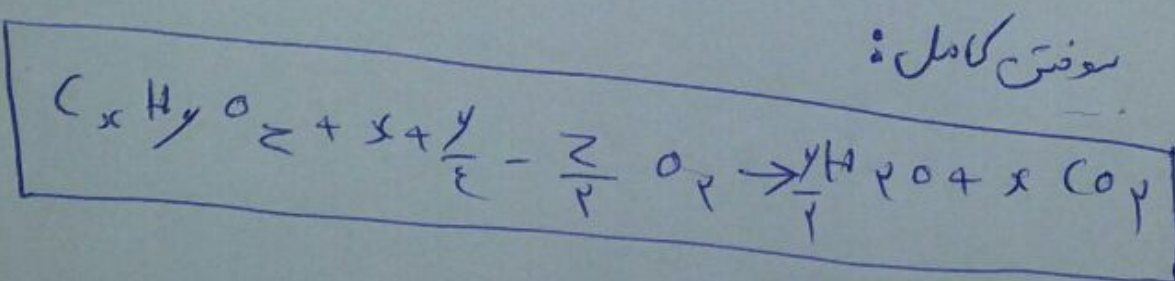 سوختن کامل:
CxHyOz + x + y/۴ - z/۲ O۲ → y/۲ H۲O + x CO۲